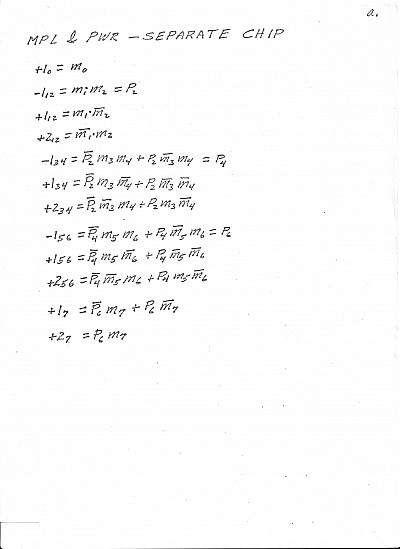 a.
MPL & PWR — SEPARATE CHIP
+1₀ = m₀
-1₁₂ = m₁m₂ = P₂
+1₁₂ = m₁·m̅₂
+2₁₂ = m̅₁·m₂
-1₃₄ = P̅₂ m₃ m₄ + P₂ m̅₃ m₄ = P₄
+1₃₄ = P̅₂ m₃ m̅₄ + P₂ m̅₃ m̅₄
+2₃₄ = P̅₂ m̅₃ m₄ + P₂ m₃ m̅₄
-1₅₆ = P̅₄ m₅ m₆ + P₄ m̅₅ m₆ = P₆
+1₅₆ = P̅₄ m₅ m̅₆ + P₄ m̅₅ m̅₆
+2₅₆ = P̅₄ m̅₅ m₆ + P₄ m₅ m̅₆
+1₇ = P̅₆ m₇ + P₆ m̅₇
+2₇ = P₆ m₇